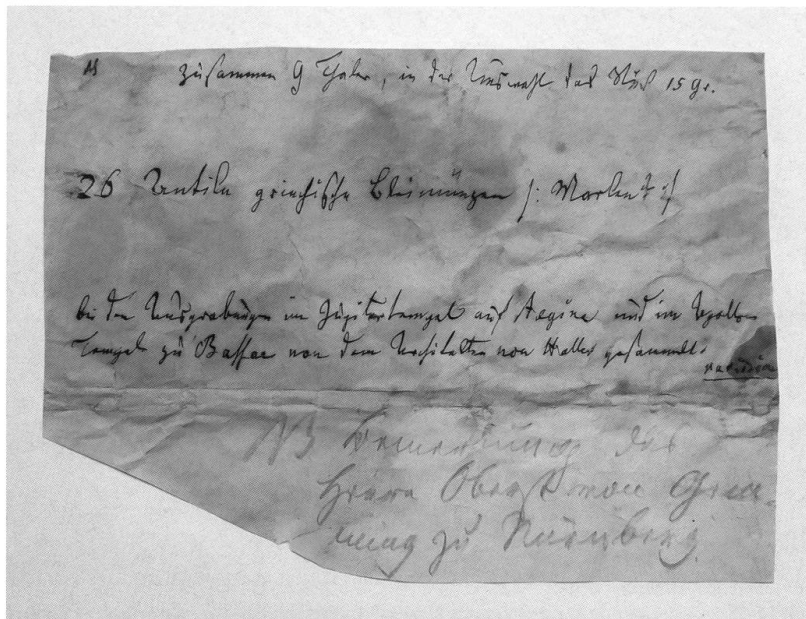 zusammen 9 Thaler, in der Auswahl das Stück 15 gr.
26 Antike griechische Bleimünzen /: Marken? :/
bei den Ausgrabungen im Jupitertempel auf Aegina und im Apollo
Tempel zu Bassae von dem Architekten von Haller gesammelt.
NB Bemerkung des
Herrn Oberst von Gem-
ming zu Nürnberg